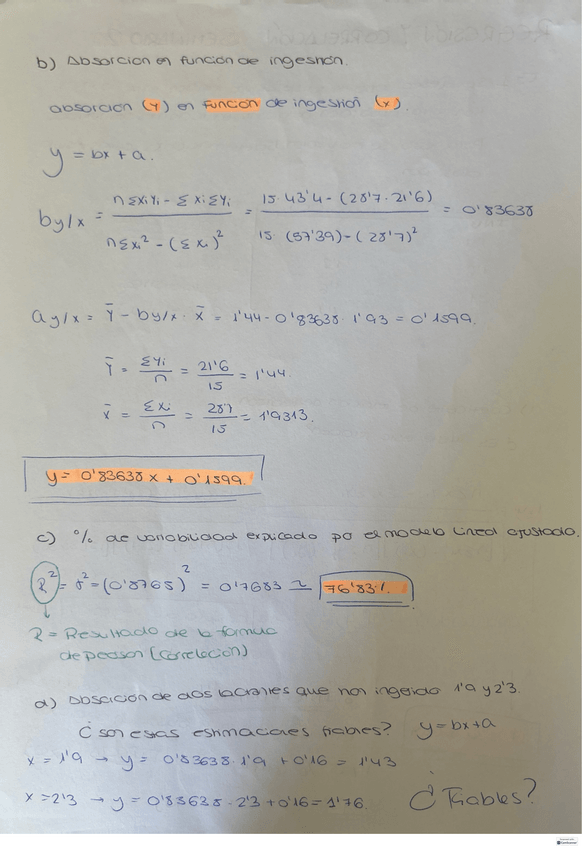 b) Absorcion en funcion de ingestión.
absorcion (Y) en función de ingestión (x).
y = bx + a.
by/x = nΣxiyi - Σxi Σyi / nΣxi² - (Σxi)² = 15·43'4 - (28'7·21'6) / 15·(57'39) - (28'7)² = 0'83638
ay/x = Ȳ - by/x · X̄ = 1'44 - 0'83638·1'93 = 0'1599.
Ȳ = Σyi / n = 21'6 / 15 = 1'44.
X̄ = Σxi / n = 28'7 / 15 = 1'9313.
y = 0'83638 x + 0'1599.
c) % de variabilidad explicado por el modelo lineal ajustado.
R² = r² = (0'8765)² = 0'7683 ≃ 76'83%.
R = Resultado de la formula
de pearson (correlación)
d) Absorción de dos lactantes que han ingerido 1'9 y 2'3.
¿son estas estimaciones fiables? y = bx + a
x = 1'9 → y = 0'83638·1'9 + 0'16 = 1'43
x = 2'3 → y = 0'83638·2'3 + 0'16 = 1'76. ¿Fiables?